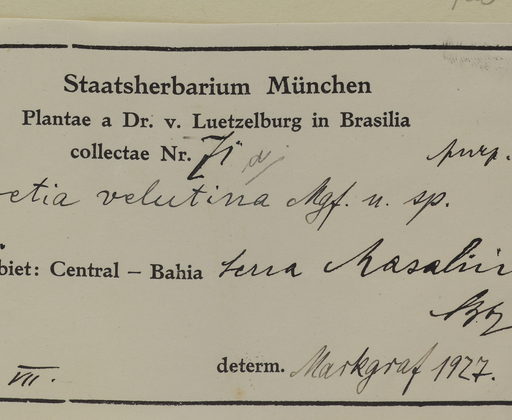 Staatsherbarium München
Plantae a Dr. v. Luetzelburg in Brasilia
collectae Nr. 71 purp.
etia velutina Mgf. n. sp.
biet: Central – Bahia Serra
VII.
determ. Markgraf 1927.